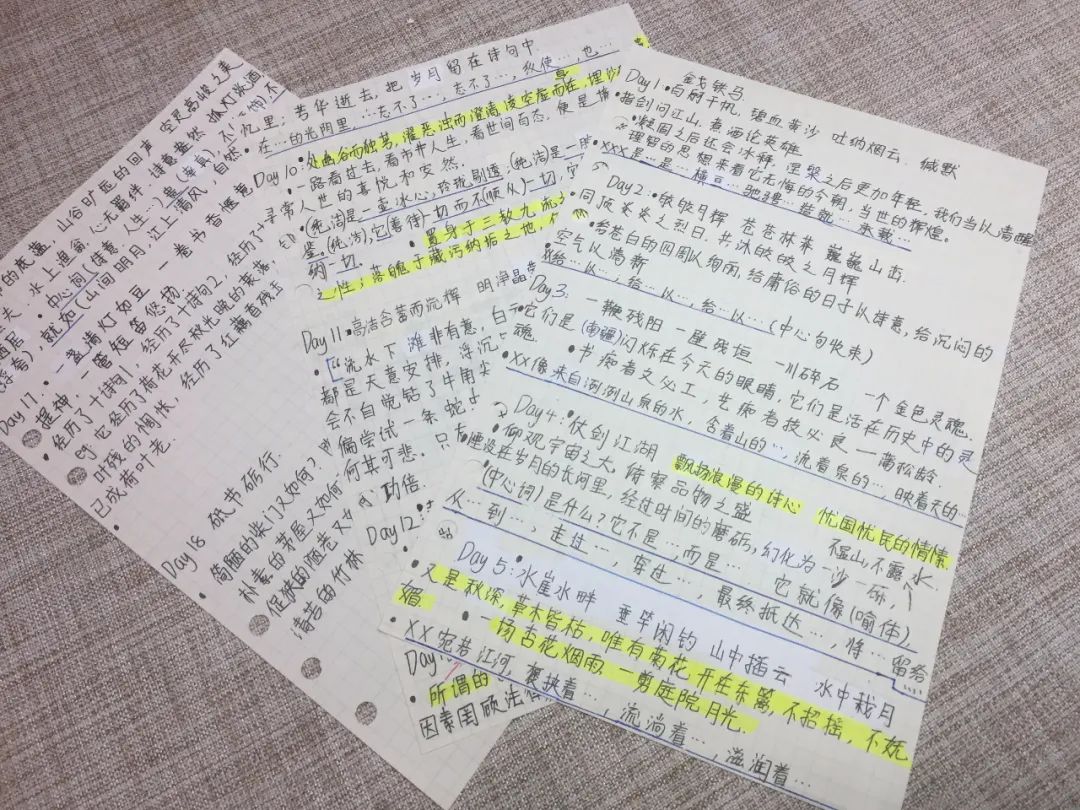 金戈铁马
Day1:•白树千帆 碧血黄沙 吐纳烟云 缄默
•指剑问江山,煮酒论英雄
•凝固之后还会冰释,涅槃之后更加年轻。我们当以清醒
理智的思想来看它无悔的今朝,当世的辉煌。
•XXX是…是…横亘…驰骋…造就…承载…
Day2:•皎皎月辉 苍苍林莽 巍巍山峦
•同顶炎炎之烈日,共沐皎皎之月辉
•给苍白的四周以绚丽,给庸俗的日子以诗意,给沉闷的
空气以清新
给…以…,给…以…,给…以…(中心句收束)
Day3:
一鞭残阳 一壁残垣 一川碎石 一个金色灵魂
它们是(南疆)闪烁在今天的眼睛,它们是活在历史中的灵
魂.
•书痴者文必工,艺痴者技必良 —蒲松龄
•XX像来自泂泂山泉的水,含着山的…,流着泉的…,映着天的…
Day4:•仗剑江湖 飘扬浪漫的诗心 忧国忧民的情愫
仰观宇宙之大,俯察品物之盛 不显山不露水
•湮没在岁月的长河里,经过时间的磨砺,幻化为一沙一砾
(中心词)是什么?它不是…而是… 它就像(喻体)
…到…,走过…,穿过…,最终抵达…,将…留给
Day5:•水崖水畔 垂竿闲钓 山中插云 水中栽月
•又是秋深,草木皆枯,唯有菊花,开在东篱,不招摇,不妩
媚
•一场杏花烟雨,一剪庭院月光.
•XX宛若江河,裹挟着…,流淌着…,滋润着…
芳华逝去,把岁月留在诗句中
在…的光阴里,…忘不了…,忘不了…,纵使…,也…
•处幽谷而独芳,濯恶浊而澄清,凌空虚而在,埋沙
Day10:•一路看过去,看市井人生,看世间百态,便是
寻常人世的喜悦和安然
(纯洁)是一壶冰心,玲珑剔透;(纯洁)是一
鉴.(纯洁),它(善待)一切而不(顺从)一切,
纳一切
•置身于三教九流之
之性;落魄于藏污纳垢之地,
Day11:•高洁含蓄而沉辉 明净晶莹
•“流水下滩非有意,白云
都是天意安排,浮沉
会不自觉钻了牛角尖
偏尝试一条蛇
何其可悲.只有
功倍
Day12:
Day1
•所谓的
因素罔顾法
空灵高峻之美
的底蕴,山谷旷远的回声
水上浥留,心无羁绊,诗意盎然,孤灯浊酒
中心词(诗意、人生…)靠(率真),不(饰)不
就如(山间明月,江上清风,自然
•一盏清灯如豆,一卷书香惬意
一管短笛悠扬
Day17
提神.
经历了+诗句1,经历了+诗句2,经历了+
eg它经历了荷花开尽秋光晚的衰落,
叶残的惆怅,经历了红藕香残
已成荷叶老.
Day18 砥书砺行.
简陋的柴门又如何?
朴素的茅屋又如何
促狭的陋巷又
清苦的竹林